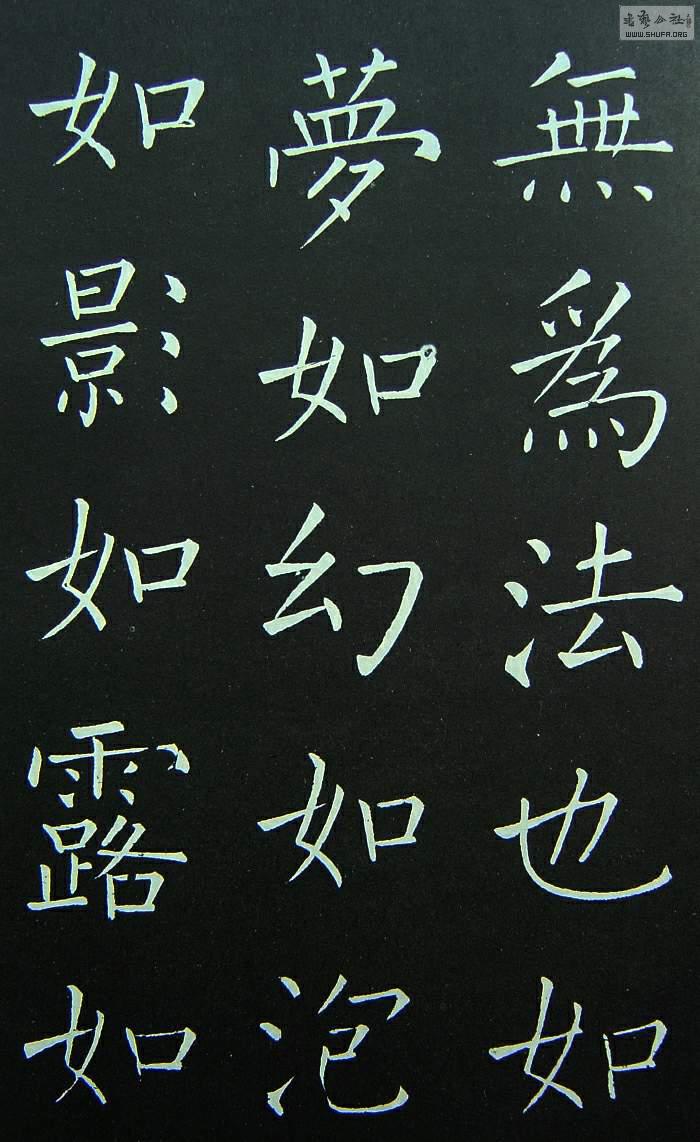 無爲法也如
夢如幻如泡
如影如露如
書藝公社
WWW.SHUFA.ORG